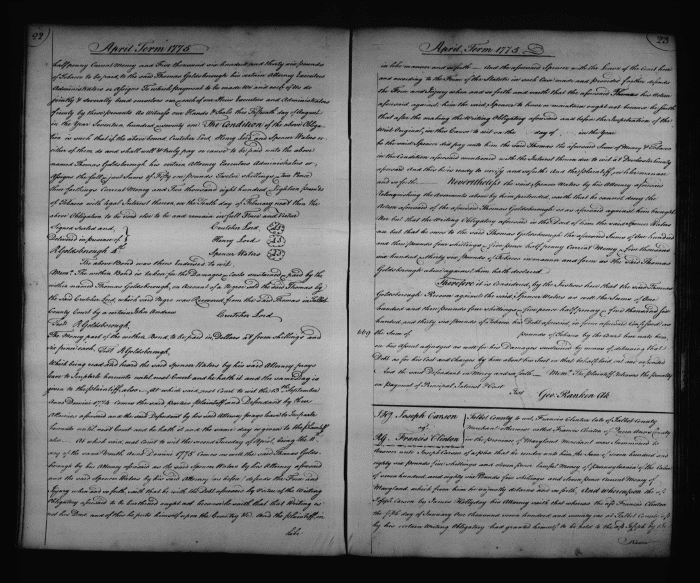 22
April Term 1775
half penny Current Money and Five thousand one hundred and thirty six pounds
of Tobacco to be paid to the said Thomas Goldsborough his certain Attorney Executors
Administrators or Assigns To which payment to be made We and each of us do
jointly & severally bind ourselves and each of our Heirs Executors and Administrators
firmly by these presents As Witness our Hands & Seals this Fifteenth day of August
in the Year Seventeen hundred seventy The Condition of the above Obliga-
tion is such that if the above bound Crutcher Lord, Henry Lord and Spencer Waters or
either of them do and shall well & truly pay or cause to be paid unto the above
named Thomas Goldsborough his certain Attorney Executors Administrators or
Assigns the full & just Sum of Fifty one pounds Twelve shillings and two Pence
three farthings Current Money and Two thousand eight hundred eighteen pounds
of Tobacco with legal Interest thereon on the Tenth day of February next then the
above Obligation to be void else to be and remain in full Force and Virtue
Signed Sealed and Crutcher Lord
Delivered in presence of Henry Lord
R Goldsborough Spencer Waters
The above Bond was thus Indorsed to wit,
Mem. The within Bond is taken for the Damages & Costs sustained & paid by the
within named Thomas Goldsborough, on Account of a Negro sold the said Thomas by
the said Crutcher Lord, which said Negro was Recovered from the said Thomas in Talbot
County Court by a certain John Andrew Crutcher Lord
Test R Goldsborough,
The Money part of the within Bond, to be paid in Dollars at 7 four shillings and
six pence each. Test R Goldsborough,
Which being read and heard the said Spencer Waters by his said Attorney prays
leave to Imparle hereunto until next Court and he hath it and the same day is
given to the plaintiff also At which said next Court to wit the 13th September
Anno Domini 1774 Comes the said parties plaintiff and Defendant by their
Attornies aforesaid and the said Defendant by his said Attorney prays leave to Imparle
hereunto until next Court and he hath it and the same day is given to the plaintiff
also At which said next Court to wit the second Tuesday of April, being the 11
day of the said Month Anno Domini 1775 Comes as well the said Thomas Golds-
borough by his Attorney aforesaid as the said Spencer Waters by his Attorney aforesaid
and the said Spencer Waters by his said Attorney as before defends the Force and
Injury when and so forth and saith that he with the Debt aforesaid by Virtue of the Writing
Obligatory aforesaid to be Burthened ought not because he saith that that Writing is
not his Deed and of this he puts himself upon the Country &c. And the plaintiff in
like
23
April Term 1775
in like manner and so forth And the aforesaid Spencer with the leave of the Court here
and according to the Form of the Statute in such Case made and provided further defends
the Force and Injury when and so forth and saith that the aforesaid Thomas his Action
aforesaid against him the said Spencer to have or maintain ought not because he saith
that after the making the Writing Obligatory aforesaid and before the Impetration of the
Writ Original, in this Cause to wit on the day of in the year
he the said Spencer did pay unto him the said Thomas the aforesaid Sums of Money & Tobacco
in the Condition aforesaid mentioned with the Interest thereon due to wit at Dorchester County
aforesaid And this he is ready to verify and so forth And the plaintiff in like manner
and so forth Nevertheless the said Spencer Waters by his Attorney aforesaid
relinquishing the Averments above by him pretended, saith that he cannot deny the
Action aforesaid of the aforesaid Thomas Goldsborough as aforesaid against him brought
Nor but that the Writing Obligatory aforesaid is the Deed of him the said Spencer Waters
nor but that he owes to the said Thomas Goldsborough the aforesaid Sums of One hundred
and three pounds four shillings & five pence half penny Current Money & five thousand
six hundred & thirty six Pounds of Tobacco in manner and form as the said Thomas
Goldsborough above against him hath declared
Therefore it is Considered, by the Justices here that the said Thomas
Goldsborough Recover against the said Spencer Waters as well the Sums of One
hundred and three pounds four shillings & five pence half penny & five thousand six
hundred, and thirty six Pounds of Tobacco his Debt aforesaid in form aforesaid Confessed as
the Sum of pounds of Tobacco by the Court here unto him,
on his Assent adjudged as well for his Damages sustained by reason of detaining that
Debt as for his Cost and Charges by him about his Suit in that behalf laid out and expended
And the said Defendant in Mercy and so forth Mem. The plaintiff releases the penalty
on payment of Principal Interest & Cost
Test Geo. Rankin Clk
489 Joseph Carson
agt
Francis Clinton
Talbot County to wit, Francis Clinton late of Talbot County
Merchant otherwise called Francis Clinton of Queen Anns County
in the province of Maryland Merchant was Summoned to
Answer unto Joseph Carson of a plea that he render unto him the Sum of seven hundred and
eighty six pounds five shillings and eleven pence lawful Money of Pennsylvania of the Value
of seven hundred and eighty six Pounds five shillings and eleven pence Current Money of
Maryland which from him he unjustly detains And so forth. And Whereupon the sd
Joseph Carson by James Holliday his Attorney saith that whereas the afd Francis Clinton
the fifth day of January One thousand seven hundred and seventy one at Talbot County afd
by his certain Writing Obligatory had granted himself to be held to the afd Joseph by the
Name